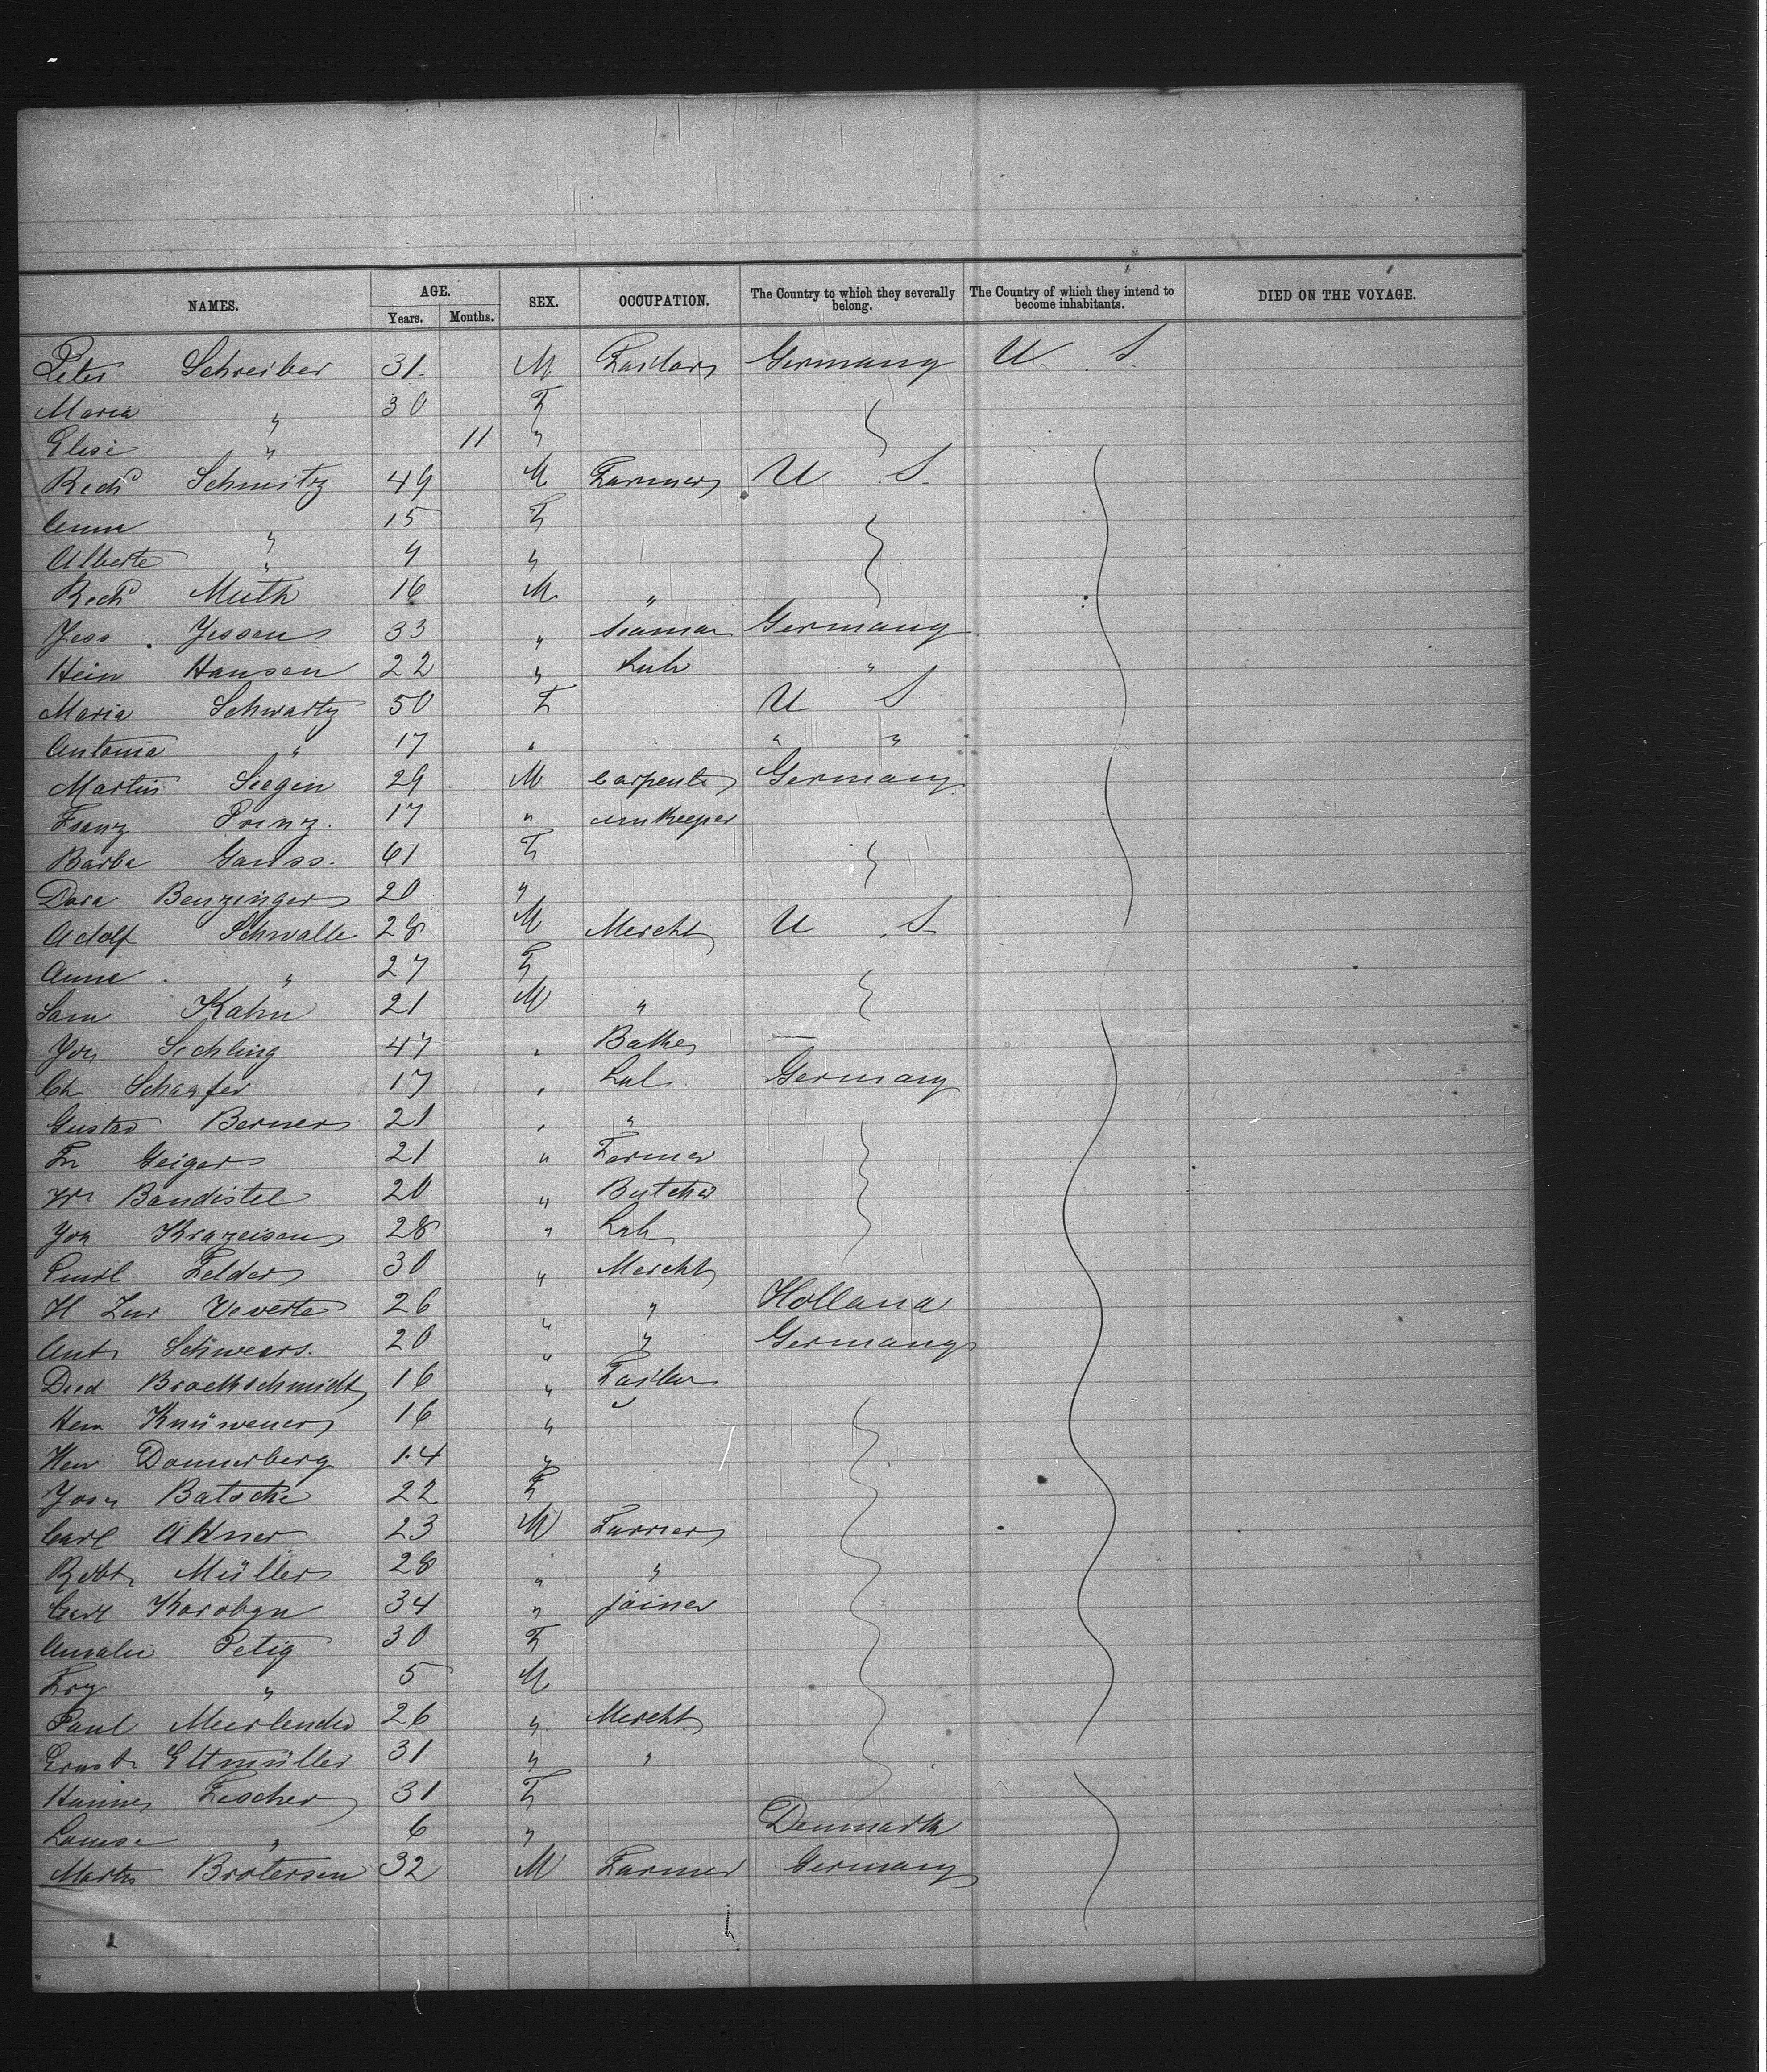 NAMES. AGE. SEX. OCCUPATION. The Country to which they severally belong. The Country of which they intend to become inhabitants. DIED ON THE VOYAGE.
Years. Months.
Peter Schreiber 31 M Tailor Germany U S
Maria " 30 F
Elise " 11 "
Rich^d Schmitz 49 M Farmer U S
Anna " 15 F
Alberte " 9 "
Rich^d Muth 16 M "
Jess Jessen 33 " Seaman Germany
Hein Hansen 22 " Lab "
Maria Schwartz 50 F U S
Antonia " 17 " " "
Martin Siegin 29 M Carpenter Germany
Franz Prinz. 17 " innkeeper
Barba Gauss. 61 F
Dora Benzinger 20 "
Adolf Schwalle 28 M Mercht U S
Anna " 27 F
Sam Kahn 21 M "
Jos Sichling 47 " Baker
Ch Schaefer 17 " Lab. Germany
Gustav Berner 21 " "
Fr Geiger 21 " Farmer
Wm Baudistel 20 " Butcher
Joh Krazeisen 28 " Lab
Emil Felder 30 " Mercht
H Zur 26 " " Holland
Ant Schweers. 20 " " Germany
Died Brackschmidt 16 " Tailor
Hem Knüwener 16 " "
Hem Donnerberg 14 "
Jos Batsche 22 F
Carl 23 M Farmer
Robt Müller 28 " "
Carl 34 " joiner
Amalie Petig 30 F
Frz " 5 M
Paul 26 " Mercht
Ernst Ettmüller 31 " "
Hannes Fischer 31 F
Louise " 6 " Denmark
Martin Brotersen 32 M Farmer Germany